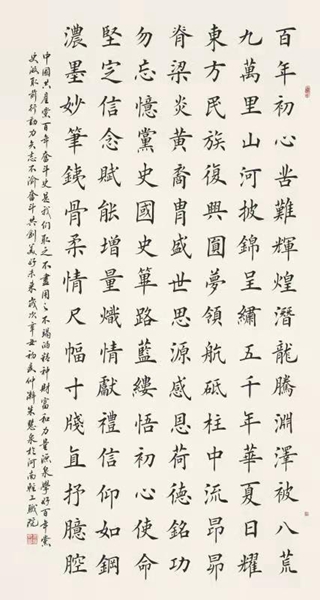 百年初心苦難輝煌潛龍騰淵澤被八荒
九萬里山河披錦呈繡五千年華夏日耀
東方民族復興圓夢領航砥柱中流昂昂
脊梁炎黃裔胄盛世思源感恩荷德銘功
勿忘憶黨史國史篳路藍縷悟初心使命
堅定信念賦能增量熾情獻禮信仰如鋼
濃墨妙筆銕骨柔情尺幅寸牋直抒臆腔
中國共產黨百年奮斗史是我们取之不盡用之不竭的精神財富和力量源泉學好百年黨
史汲取前行動力矢志不渝奮斗共創美好未來歲次辛丑初夏仲澣朱慧泉於河南輕工職院